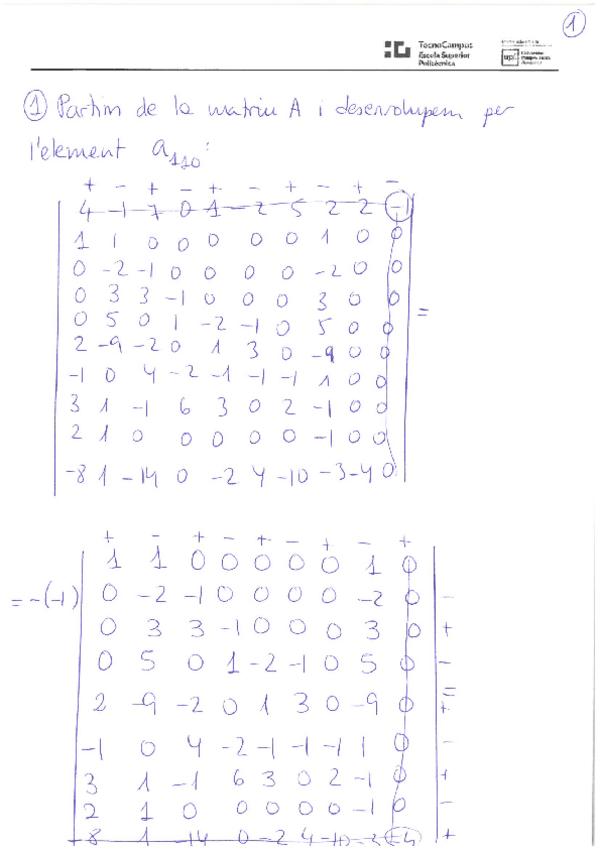 1
TecnoCampus
Escola Superior
Politècnica
upf.
① Partim de la matriu A i desenvolupem per
l'element a₁₁₀:
+ − + − + − + − + −
4 -1 7 0 1 -2 5 2 2 -1
1 1 0 0 0 0 0 1 0 0
0 -2 -1 0 0 0 0 -2 0 0
0 3 3 -1 0 0 0 3 0 0
=
0 5 0 1 -2 -1 0 5 0 0
2 -9 -2 0 1 3 0 -9 0 0
-1 0 4 -2 -1 -1 -1 1 0 0
3 1 -1 6 3 0 2 -1 0 0
2 1 0 0 0 0 0 -1 0 0
-8 1 -14 0 -2 4 -10 -3 -4 0
+ − + − + − + − +
1 1 0 0 0 0 0 1 0
= -(-1) 0 -2 -1 0 0 0 0 -2 0 −
0 3 3 -1 0 0 0 3 0 +
0 5 0 1 -2 -1 0 5 0 −
=
2 -9 -2 0 1 3 0 -9 0 +
-1 0 4 -2 -1 -1 -1 1 0 −
3 1 -1 6 3 0 2 -1 0 +
2 1 0 0 0 0 0 -1 0 −
-8 1 -14 0 -2 4 -10 -3 -4 +